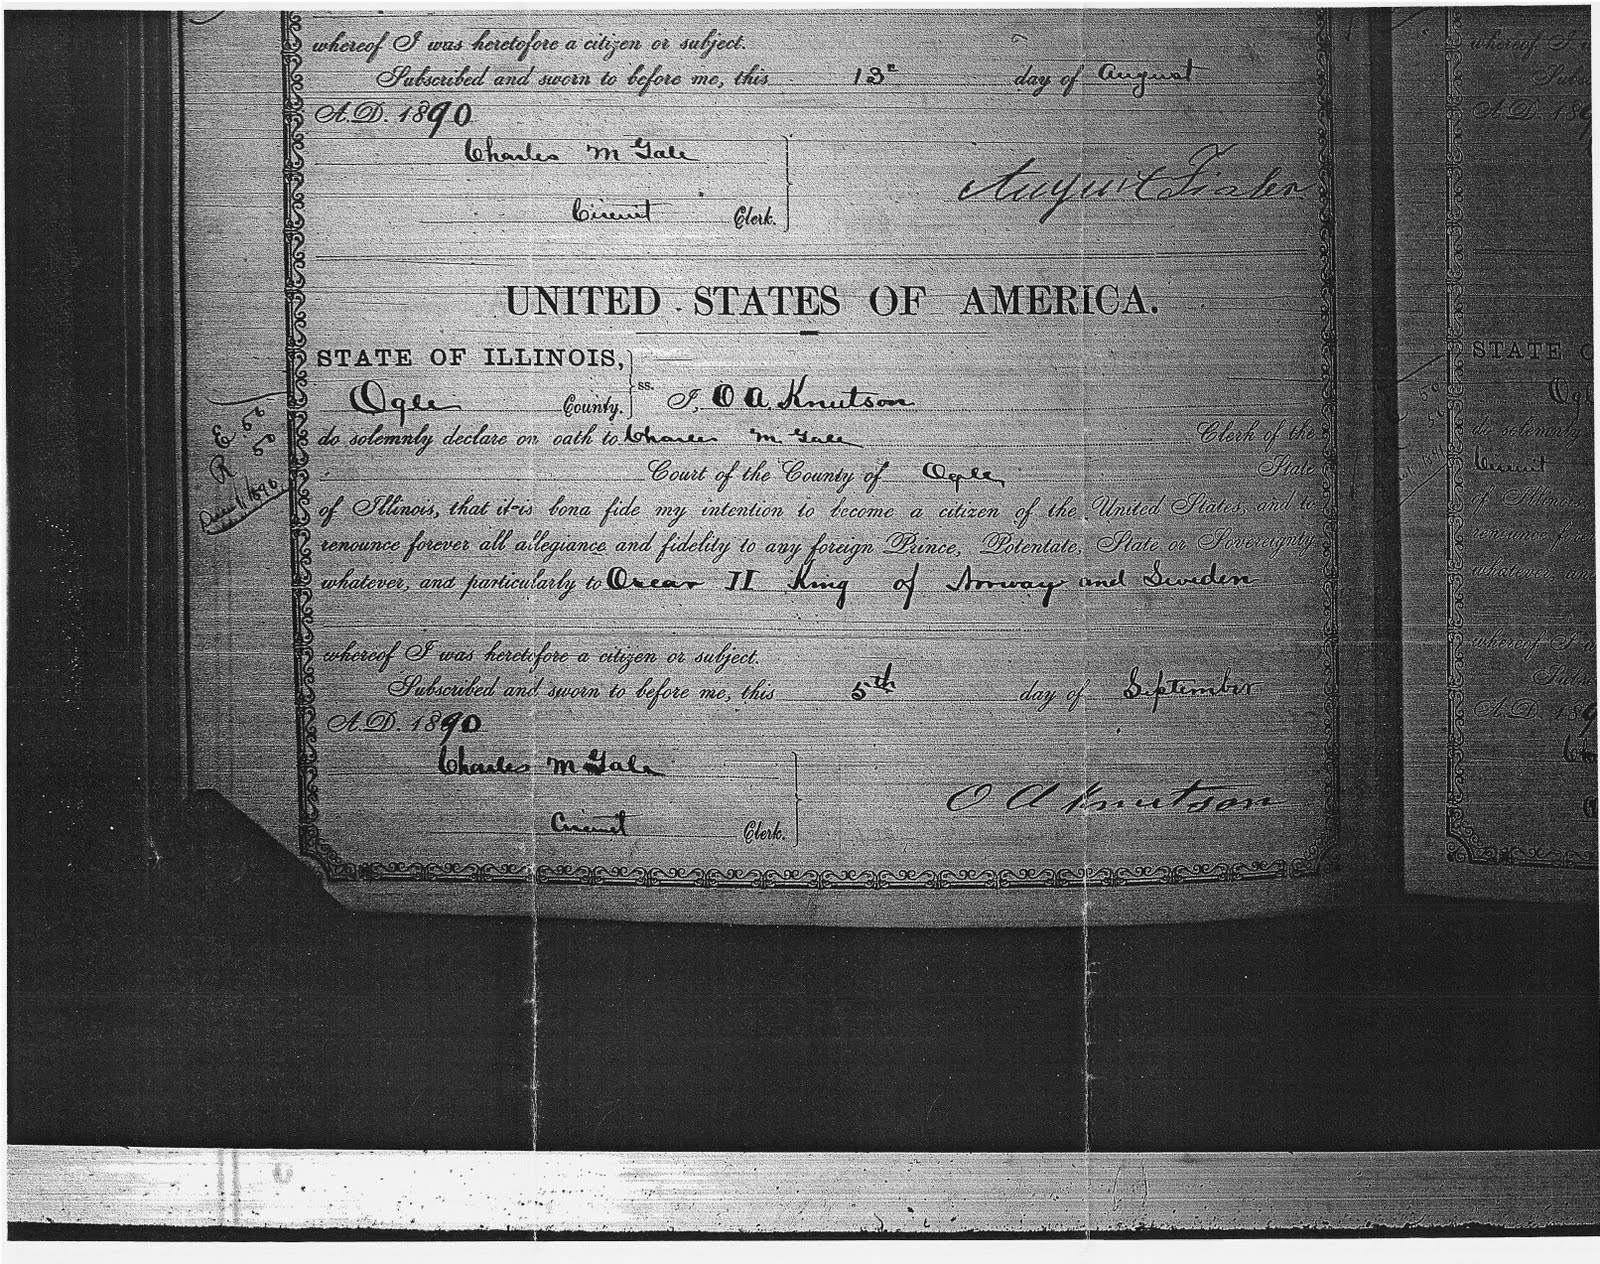 whereof I was heretofore a citizen or subject.
Subscribed and sworn to before me, this 13" day of August
A.D. 1890
Charles M Gale
August
Circuit Clerk.
UNITED STATES OF AMERICA.
STATE OF ILLINOIS,
Ogle County. ss. I, O A Knutson
do solemnly declare on oath to Charles M. Gale Clerk of the
Court of the County of Ogle State
of Illinois, that it is bona fide my intention to become a citizen of the United States, and to
renounce forever all allegiance and fidelity to any foreign Prince, Potentate, State or Sovereignty
whatever, and particularly to Oscar II King of Norway and Sweden
whereof I was heretofore a citizen or subject.
Subscribed and sworn to before me, this 5th day of September
A.D. 1890
Charles M Gale
O A Knutson
Circuit Clerk.
E. 50
R 50
1890
whereof I
A.D. 189
STATE O
do solemnly
Circuit
of Illinois,
renounce fore
whatever, an
whereof I
A.D. 189